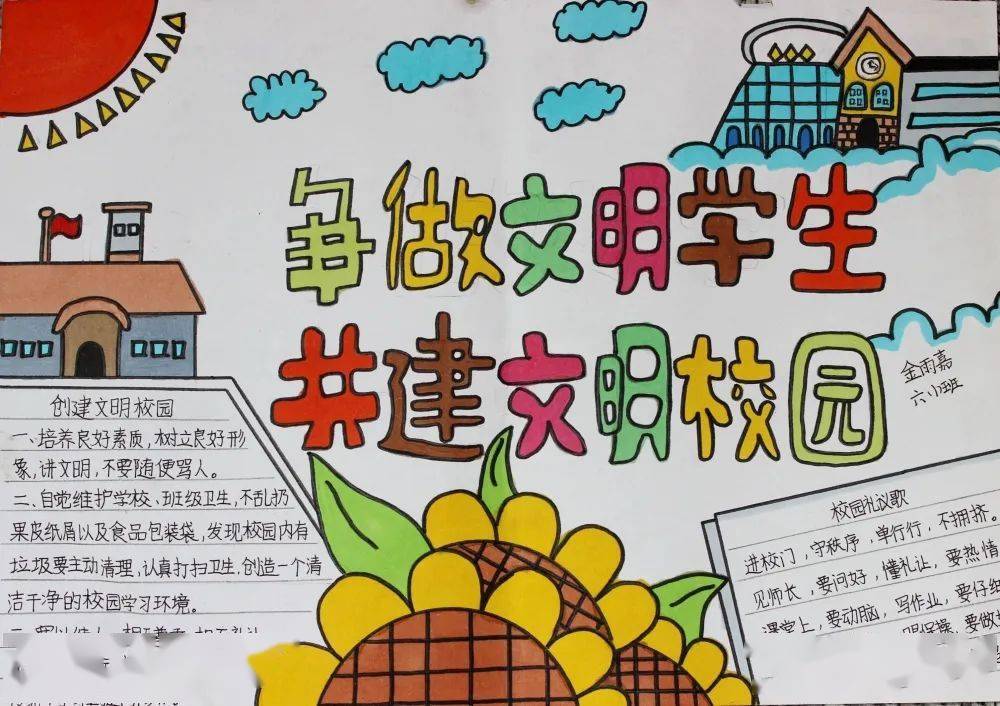 争做文明学生
共建文明校园
金雨嘉
六小班
创建文明校园
一、培养良好素质,树立良好形
象,讲文明,不要随便骂人。
二、自觉维护学校、班级卫生,不乱扔
果皮纸屑以及食品包装袋,发现校园内有
垃圾要主动清理,认真打扫卫生,创造一个清
洁干净的校园学习环境。
校园礼议歌
进校门,守秩序,单行行,不拥挤。
见师长,要问好,懂礼让,要热情
课堂上,要动脑,写作业,要仔细
明保操,要做